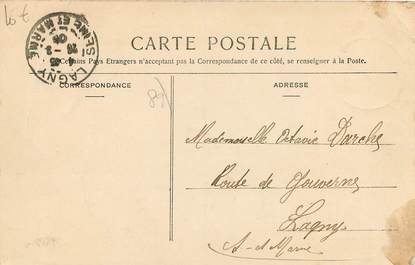 10 €
LAGNY
SEINE ET MARNE
CARTE POSTALE
Certains Pays Etrangers n'acceptant pas la Correspondance de ce côté, se renseigner à la Poste.
CORRESPONDANCE
ADRESSE
Mademoiselle Octavie Darche
Route de Gouverne
Lagny
S.-et Marne